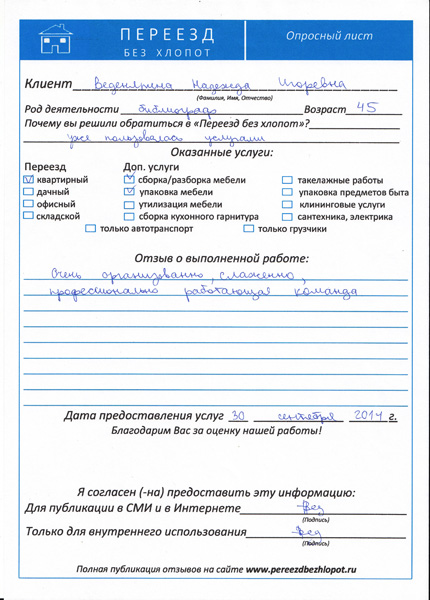 ПЕРЕЕЗД
БЕЗ ХЛОПОТ
Опросный лист
Клиент Веденяпина Надежда Игоревна
(Фамилия, Имя, Отчество)
Род деятельности библиограф Возраст 45
Почему вы решили обратиться в «Переезд без хлопот»?
уже пользовалась услугами
Оказанные услуги:
Переезд Доп. услуги
квартирный сборка/разборка мебели такелажные работы
дачный упаковка мебели упаковка предметов быта
офисный утилизация мебели клининговые услуги
складской сборка кухонного гарнитура сантехника, электрика
только автотранспорт только грузчики
Отзыв о выполненной работе:
Очень организованно, слаженно,
профессионально работающая команда
Дата предоставления услуг 30 сентября 2014 г.
Благодарим Вас за оценку нашей работы!
Я согласен (-на) предоставить эту информацию:
Для публикации в СМИ и в Интернете
(Подпись)
Только для внутреннего использования
(Подпись)
Полная публикация отзывов на сайте www.pereezdbezhlopot.ru